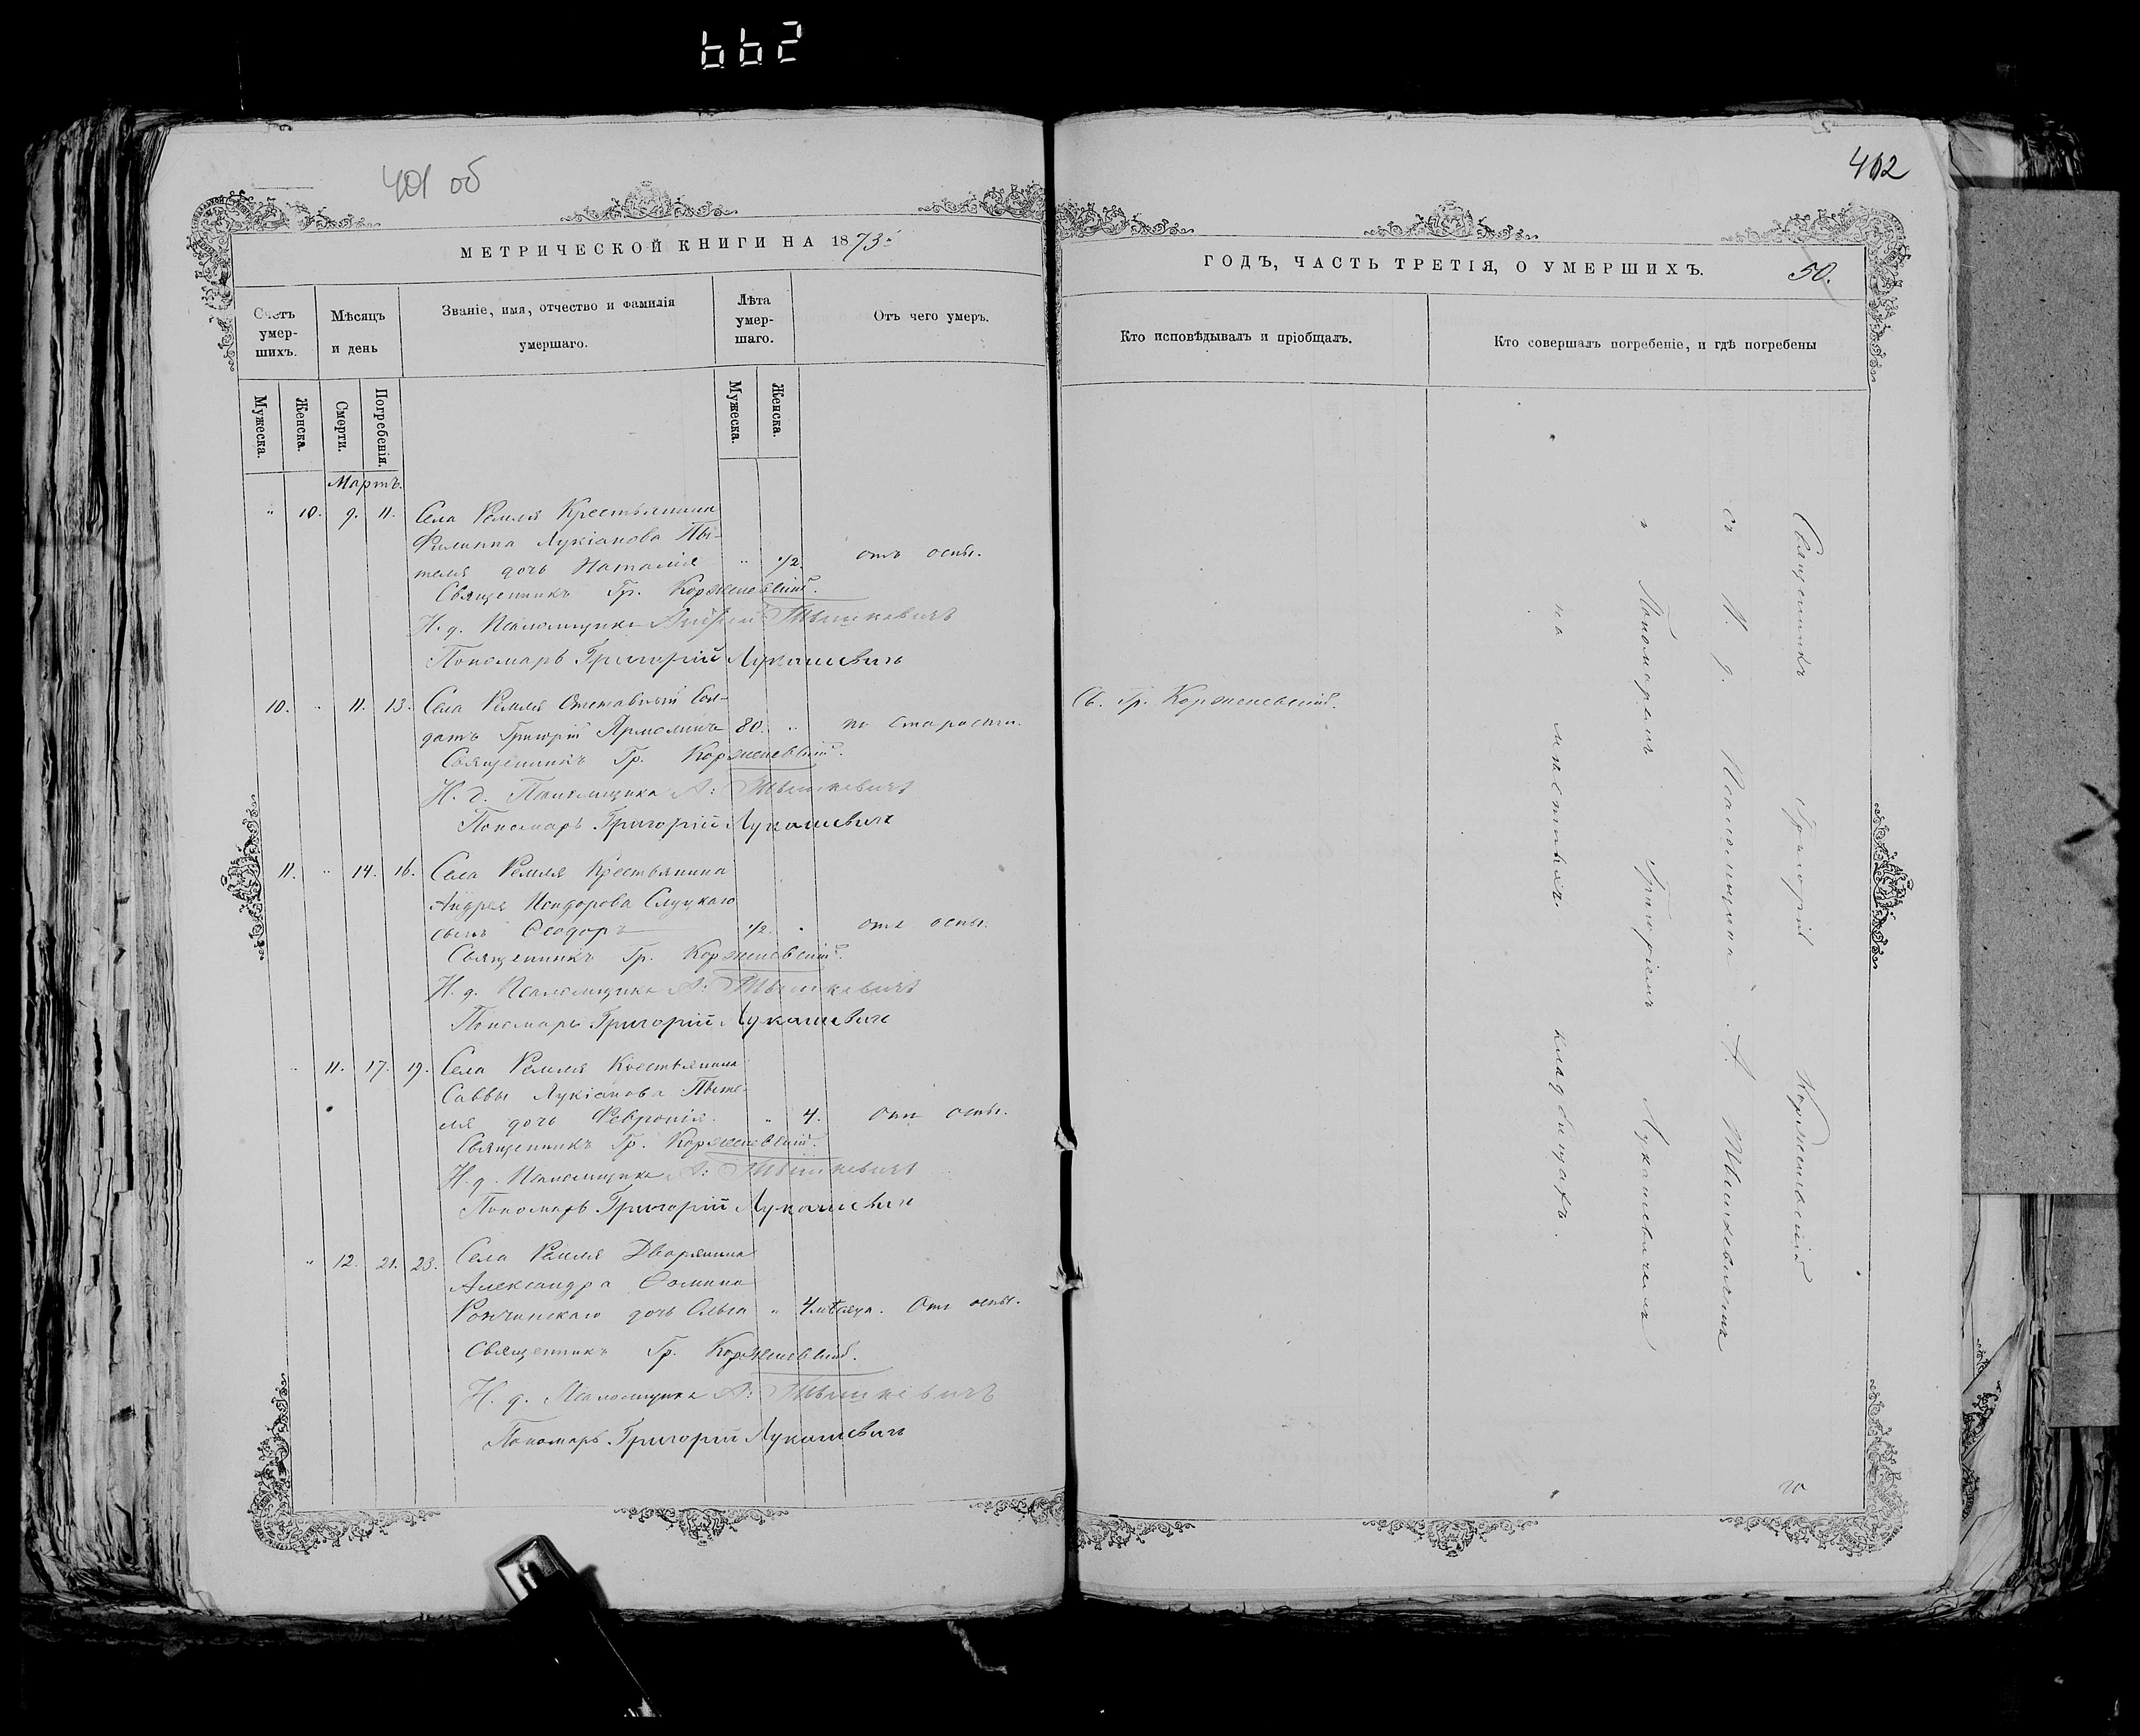 662
401 об
МЕТРИЧЕСКОЙ КНИГИ НА 1873й
Счетъ умер-шихъ.
Мѣсяцъ и день
Званіе, имя, отчество и фамилія умершаго.
Лѣта умер-шаго.
Отъ чего умеръ.
Мужеска.
Женска.
Смерти.
Погребенія.
Мужеска.
Женска.
Мартъ.
" 10. 9. 11. Села Ремля Крестьянина
Филиппа Лукіанова Пы-
теля дочь Наталія " 1/2. отъ оспы.
Священникъ Гр. Корженевскій.
И. д. Псаломщика Андрей Тышкевичъ
Пономарь Григорій Лукашевичъ
10. " 11. 13. Села Ремля Отставный Сол-
датъ Григорій 80. " по старости.
Священникъ Гр. Корженевскій.
И. д. Псаломщика А: Тышкевичъ
Пономарь Григорій Лукашевичъ
11. " 14. 16. Села Ремля Крестьянина
Андрея Исидорова Слуцкаго
сынъ Ѳеодоръ 1/2. " отъ оспы.
Священникъ Гр. Корженевскій.
И. д. Псаломщика А: Тышкевичъ
Пономарь Григорій Лукашевичъ
" 11. 17. 19. Села Ремля Крестьянина
Саввы Лукіанова Пыте-
ля дочь Февронія. " 4. отъ оспы.
Священникъ Гр. Корженевскій.
И. д. Псаломщика А: Тышкевичъ
Пономарь Григорій Лукашевичъ
" 12. 21. 23. Села Ремля Дворянина
Александра Ѳомина
дочь Ольга " 4 мѣсяц. Отъ оспы.
Священникъ Гр. Корженевскій.
И. д. Псаломщика А: Тышкевичъ
Пономарь Григорій Лукашевичъ
402
ГОДЪ, ЧАСТЬ ТРЕТІЯ, О УМЕРШИХЪ.
50.
Кто исповѣдывалъ и пріобщалъ.
Кто совершалъ погребеніе, и гдѣ погребены
Св. Гр. Корженевскій.
Священникъ Григорій Корженевскій
съ И. д. Псаломщика А. Тышкевичемъ
и Пономаремъ Григоріемъ Лукашевичемъ
на мѣстныхъ кладбищахъ.